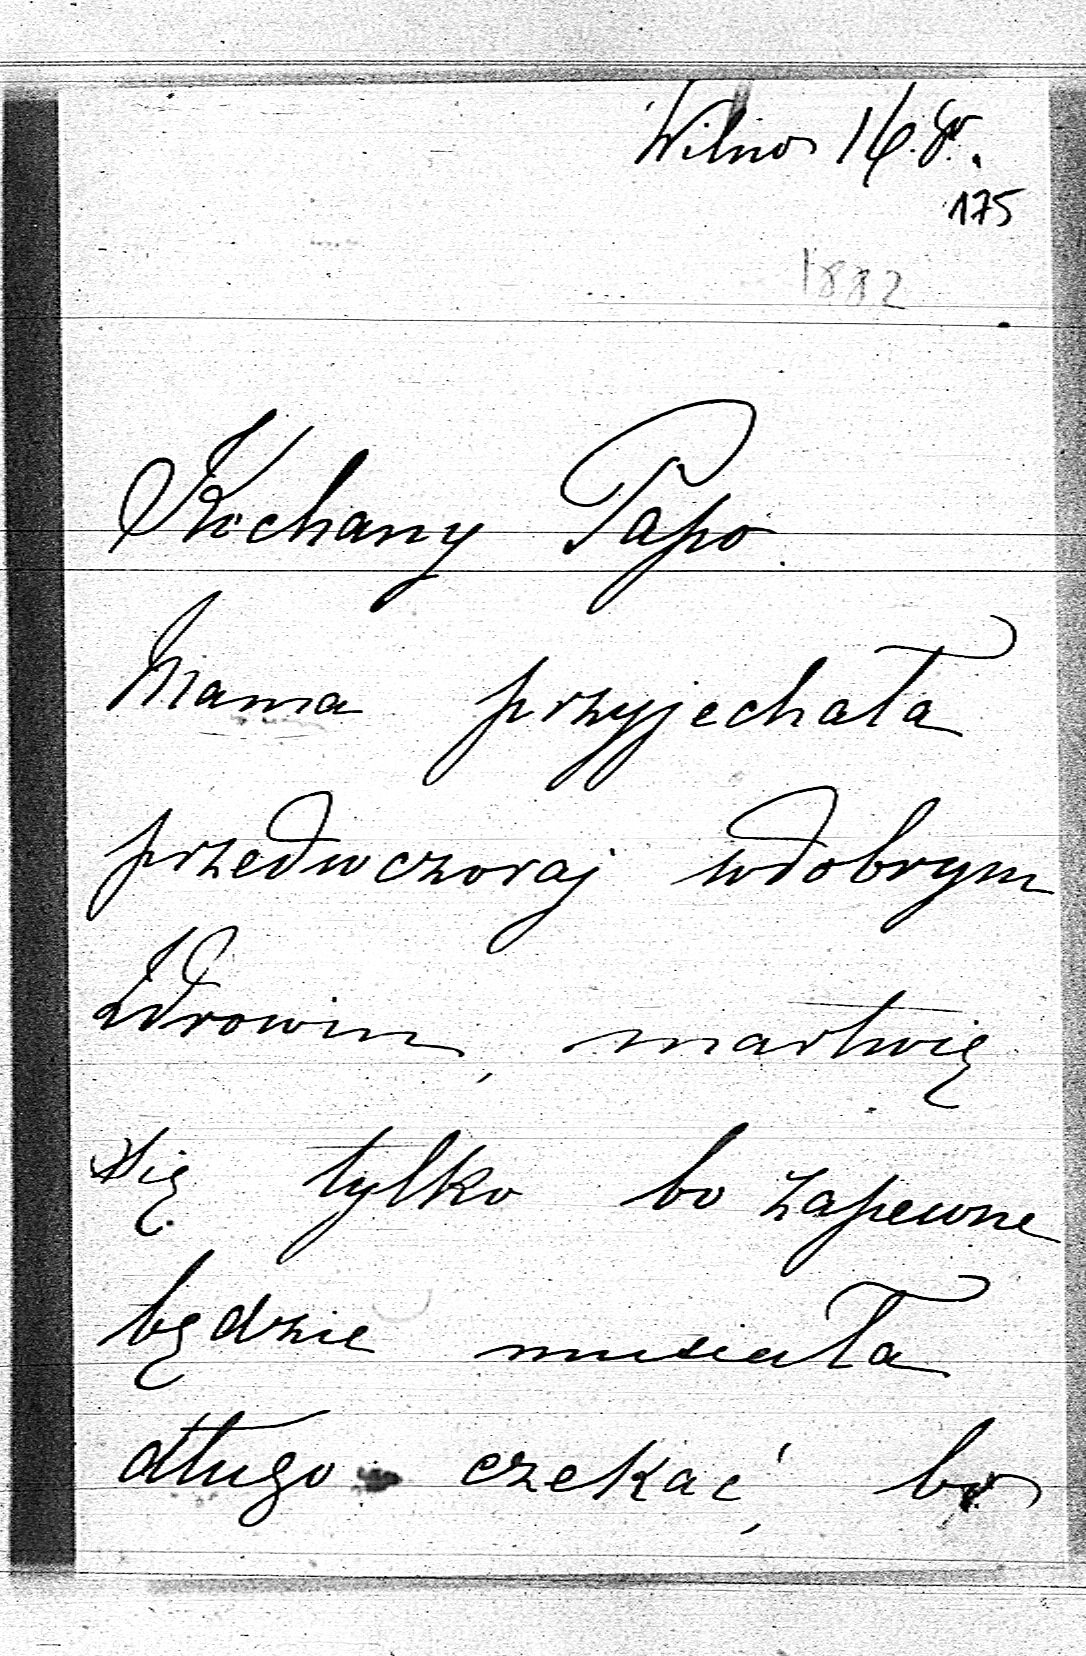 Wilno 16.
175
1882
Kochany Papo.
Mama przyjechała
przedwczoraj wdobrym
zdrowiu, martwię
się tylko bo zapewne
będzie musiała
długo czekać, bo